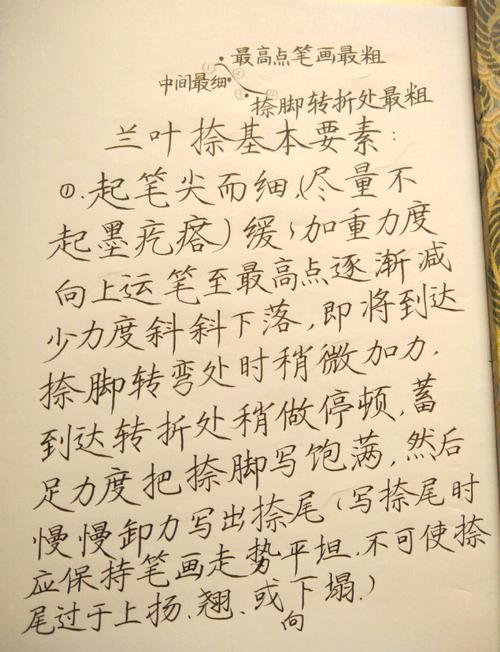 最高点笔画最粗
中间最细
捺脚转折处最粗
兰叶捺基本要素:
①.起笔尖而细、(尽量不
起墨疙瘩)缓、加重力度
向上运笔至最高点逐渐减
少力度斜斜下落,即将到达
捺脚转弯处时稍微加力,
到达转折处稍做停顿,蓄
足力度把捺脚写饱满,然后
慢慢卸力写出捺尾(写捺尾时
应保持笔画走势平坦,不可使捺
尾过于上扬、翘、或下塌.)
向